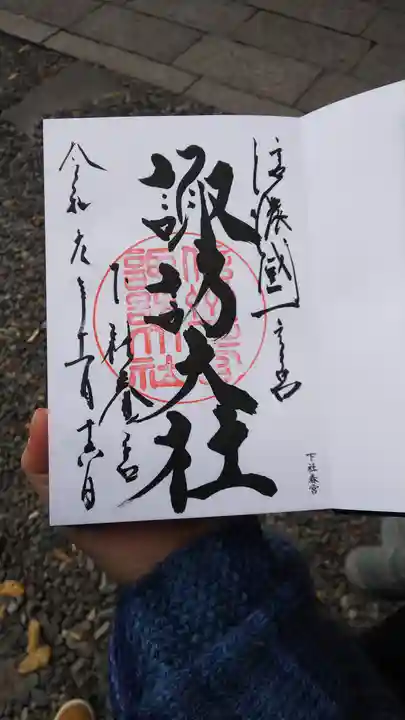 信濃國一之宮
諏訪大社
下社春宮
令和元年十一月十六日
下社春宮